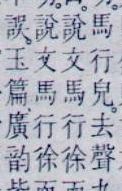 馬行皃去聲
說文馬行徐
說文馬行徐
誤玉篇廣韵